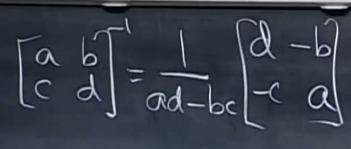 [a b; c d]^{-1} = 1/(ad-bc) [d -b; -c a]